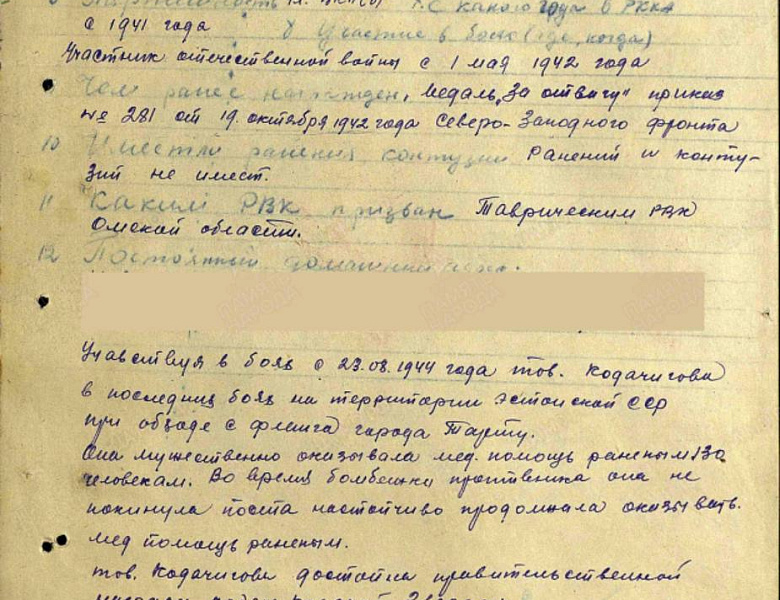 с какого года в РККА
с 1941 года   8 Участие в боях (где, когда)
Участник отечественной войны с 1 мая 1942 года
Чем ранее награжден, Медаль „За отвагу" приказ
№ 281 от 19. октября 1942 года Северо-Западного фронта
10 Имеет ли ранения контузии Ранений и конту-
зий не имеет.
11 Каким РВК призван Таврическим РВК
Омской области.
12 Постоянный домашний адрес.
Учавствуя в боях с 23.08.1944 года тов. Кодачигова
в последних боях на территории Эстонской ССР
при обходе с фланга города Тарту.
Она мужественно оказывала мед. помощь раненым 130
человекам. Во время бомбежки противника она не
покинула поста настойчиво продолжала оказывать.
мед помощь раненым.
тов. Кодачигова достойна правительственной